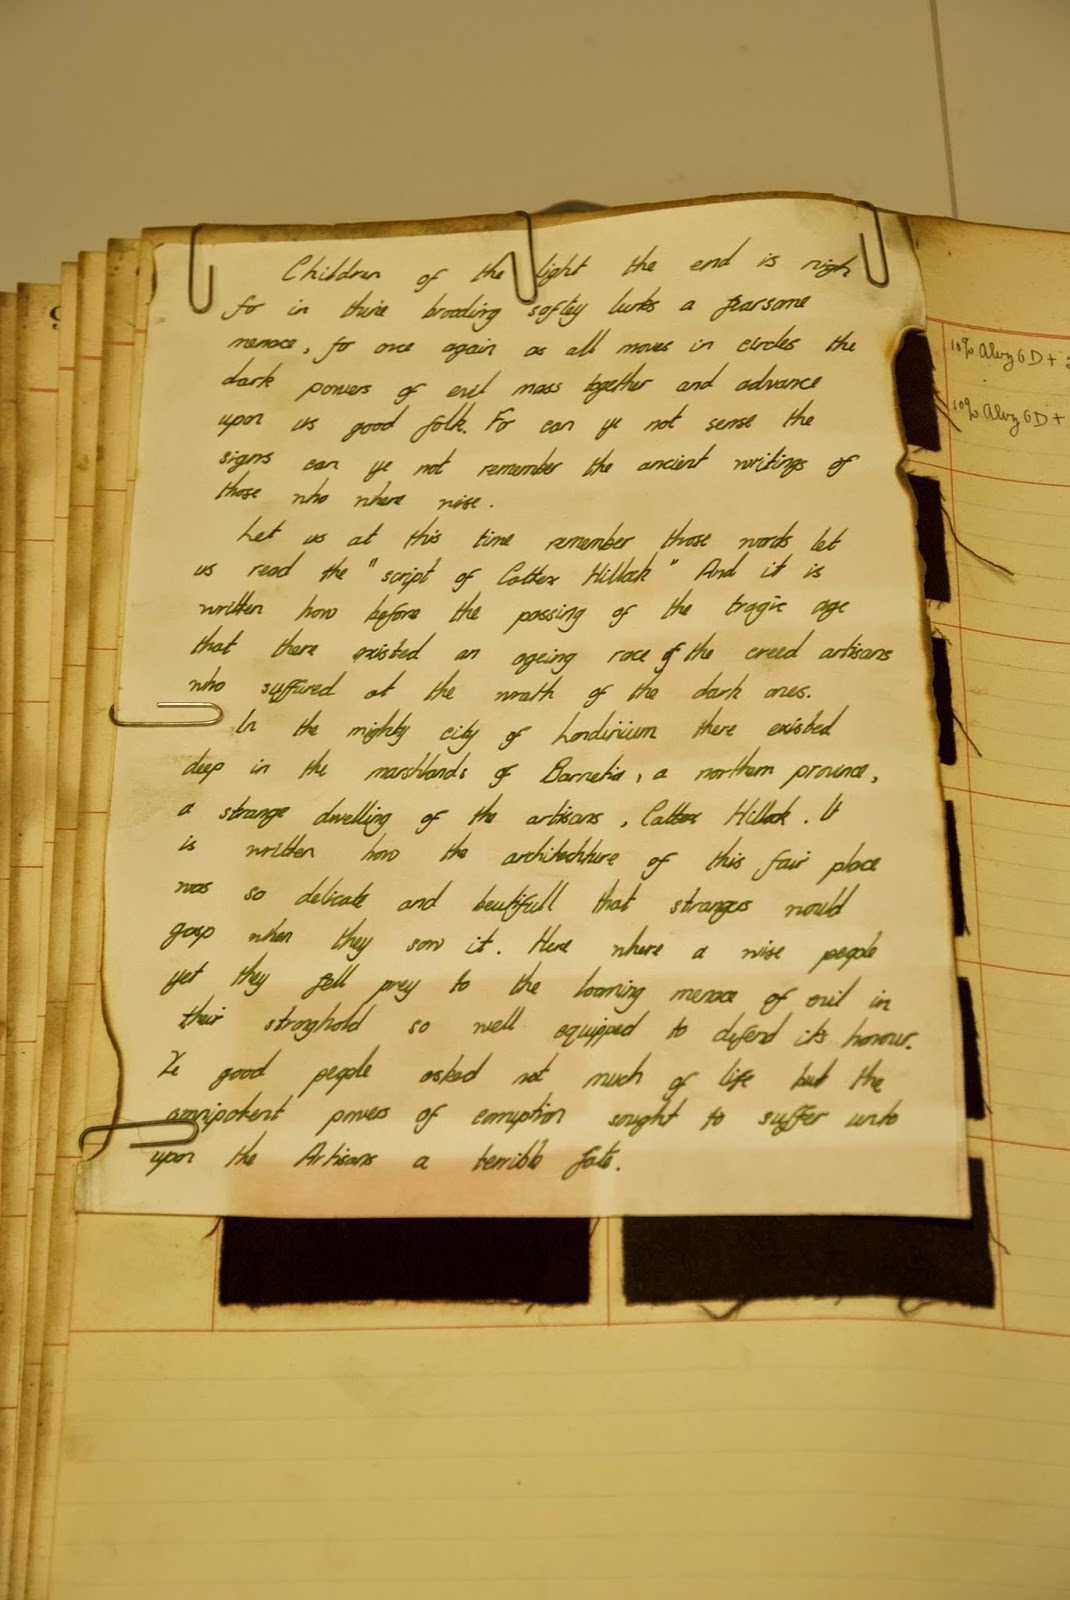 Children of the light the end is nigh
for in thine brooding softley lurks a fearsome
menace, for once again as all moves in circles the
dark powers of evel mass together and advance
upon us good folk. For can ye not sense the
signs can ye not remember the ancient writings of
those who where wise.
Let us at this time remember those words let
us read the "script of Cattex Hillock" And it is
written how before the passing of the tragic age
that there existed an ageing race of the creed artisans
who suffured at the wrath of the dark ones.
In the mighty city of Londinium there existed
deep in the marshlands of Barnetia, a northern province,
a strange dwelling of the artisans, Cattex Hillock. It
is written how the architechture of this fair place
was so delicate and beutifull that strangers would
gasp when they saw it. Here where a wise people
yet they fell prey to the looming menace of evil in
their stronghold so well equipped to defend its honour.
Ye good people asked not much of life but the
omnipotent powers of corruption sought to suffer unto
upon the Artisans a terrible fate.
10% Alvy GD +
10% Alvy GD +